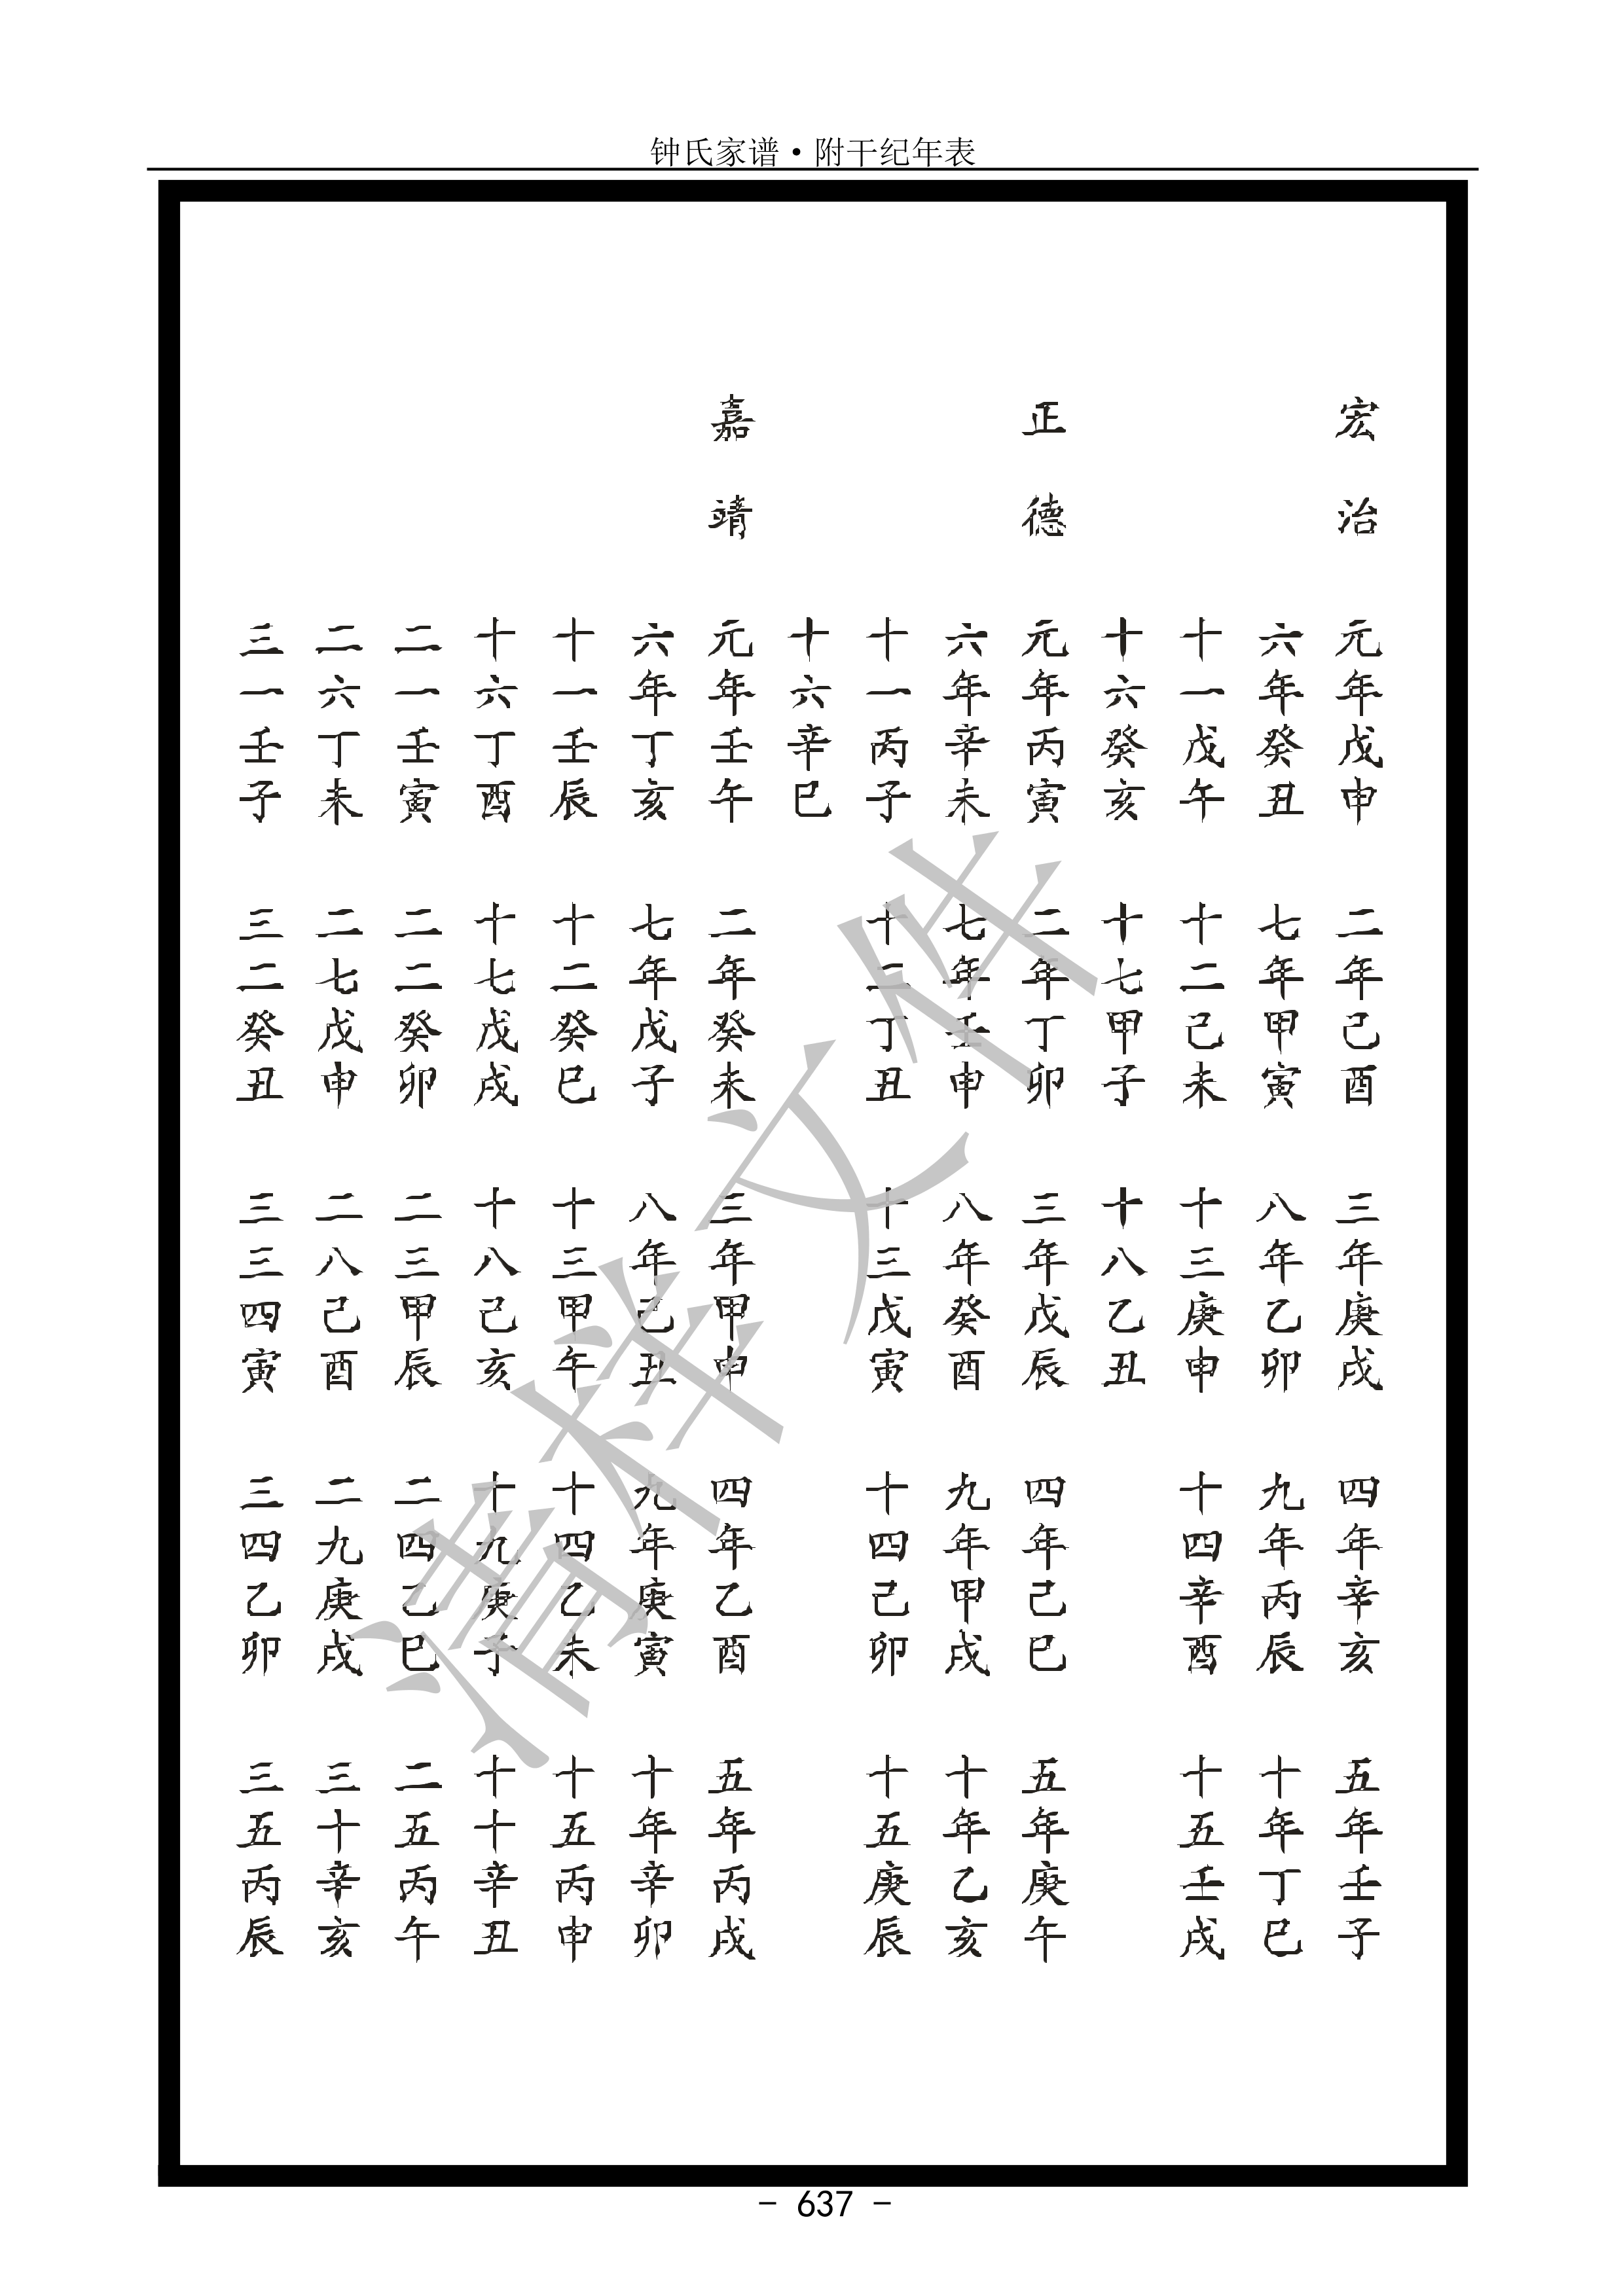 钟氏家谱·附干纪年表
宏治 元年戊申 二年己酉 三年庚戌 四年辛亥 五年壬子
六年癸丑 七年甲寅 八年乙卯 九年丙辰 十年丁巳
十一戊午 十二己未 十三庚申 十四辛酉 十五壬戌
十六癸亥 十七甲子 十八乙丑
正德 元年丙寅 二年丁卯 三年戊辰 四年己巳 五年庚午
六年辛未 七年壬申 八年癸酉 九年甲戌 十年乙亥
十一丙子 十二丁丑 十三戊寅 十四己卯 十五庚辰
十六辛巳
嘉靖 元年壬午 二年癸未 三年甲申 四年乙酉 五年丙戌
六年丁亥 七年戊子 八年己丑 九年庚寅 十年辛卯
十一壬辰 十二癸巳 十三甲午 十四乙未 十五丙申
十六丁酉 十七戊戌 十八己亥 十九庚子 十十辛丑
二一壬寅 二二癸卯 二三甲辰 二四乙巳 二五丙午
二六丁未 二七戊申 二八己酉 二九庚戌 三十辛亥
三一壬子 三二癸丑 三三四寅 三四乙卯 三五丙辰
清样文件
- 637 -